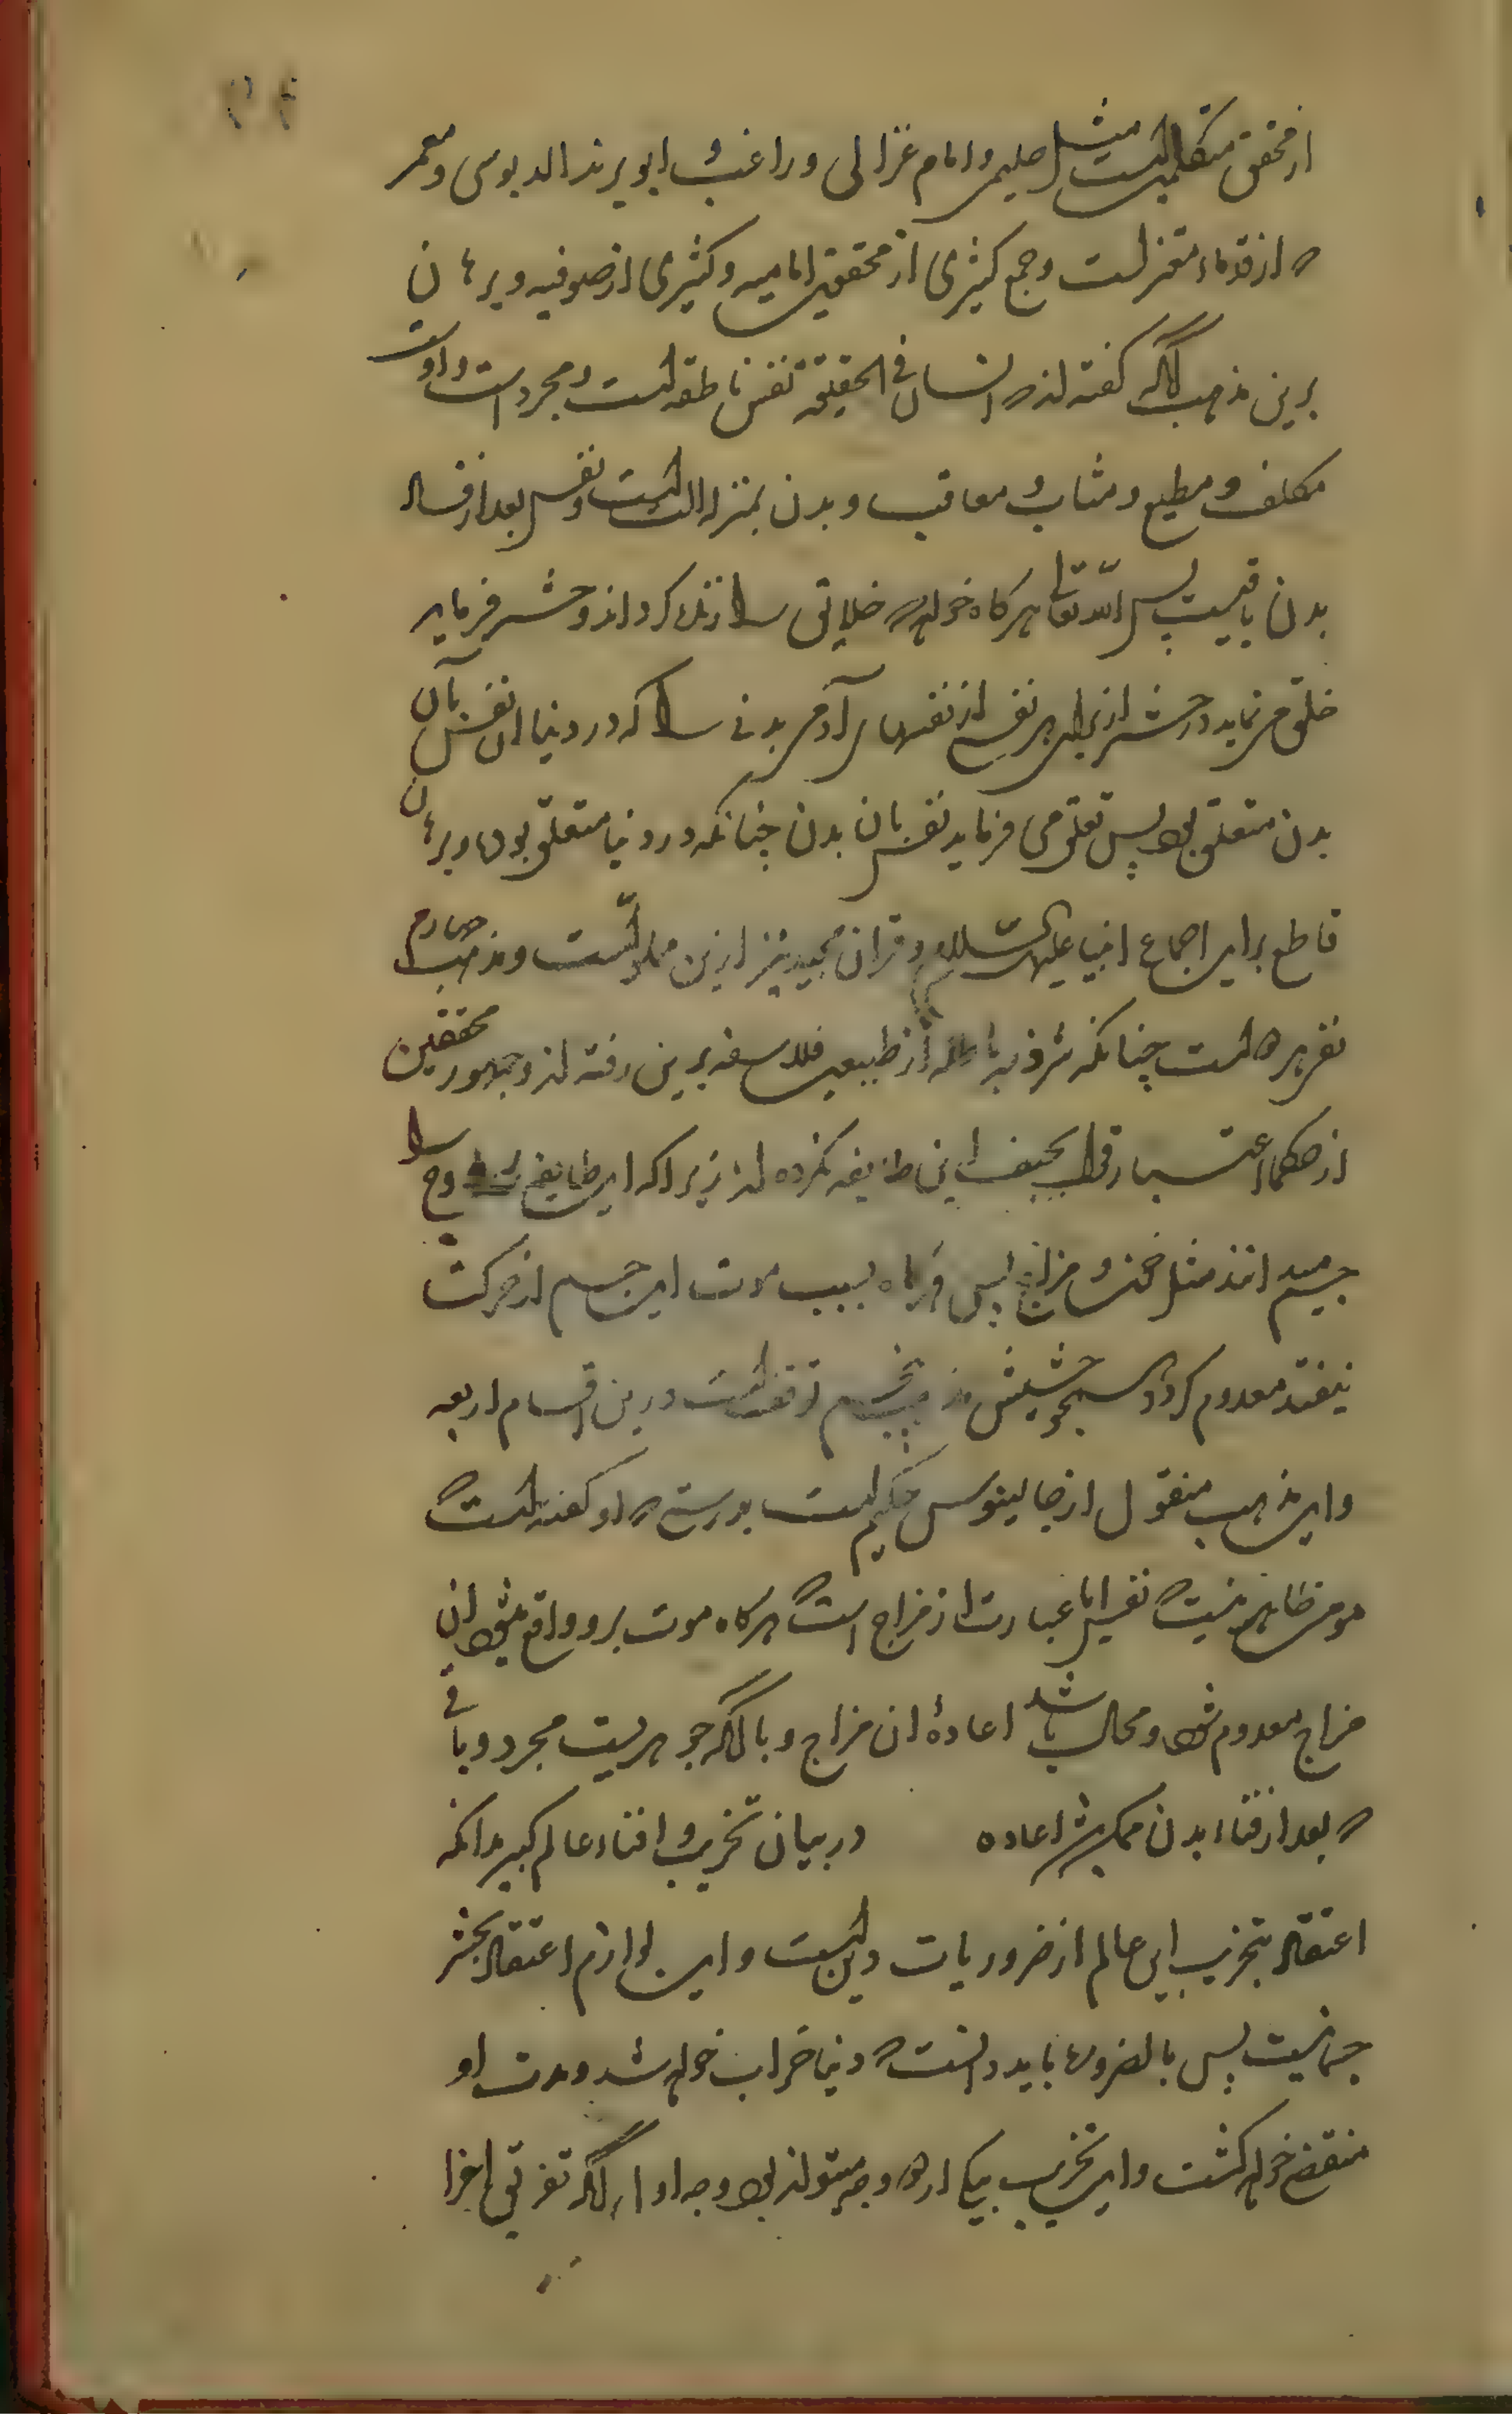 از محققین متکلمین است مثل حلیمی و امام غزالی و راغب و ابو یزید الدبوسی و معمر
که از قدماء معتزلست و جمع کثیری از محققین امامیه و کثیری از صوفیه و برهان
برین مذهب آنکه گفته‌اند که انسان فی الحقیقه نفس ناطقه است و مجرد است و اوست
مکلف و مطیع و مثاب و معاقب و بدن بمنزله الت است و نفس بعد از فساد
بدن باقیست پس الله تعالی هرکاه خواهد که خلایق را زنده کرداند و حشر فرماید
خلق می نماید در حشر از برای هر نفسی از نفسهای آدمی بدنی را که در دنیا ان نفس بآن
بدن متعلق بود پس تعلق می فرماید نفس بان بدن چنانکه در دنیا متعلق بود و برهان
قاطع برای اجماع انبیا علیهم السلام و قران مجید نیز ازین مملوست و مذهب چهارم
نفی هر دو است چنانکه از طبیعین فلاسفه برین رفته‌اند و جمهور محققین
از حکما اعتبار قول سخیف این طایفه نکرده‌اند زیرا که این طایفه روح را
جسم میدانند مثل خون و مزاج پس هرکاه بسبب موت این جسم از حرکت
بیفتد معدوم کردد همچو حشیش مذهب پنجم توقفست درین اقسام اربعه
و این مذهب منقول از جالینوس حکیم است بدرستی که او گفته است که
بر من ظاهر نیست که نفس ایا عبارت از مزاج است که هرکاه موت برو واقع شود ان
مزاج معدوم شود و محال باشد اعادهٔ ان مزاج و یا آنکه جوهریست مجرد و باقی
که بعد از فناء بدن ممکن باشد اعاده در بیان تخریب و افناء عالم کبیر بدانکه
اعتقاد بتخریب این عالم از ضروریات دین است و این لوازم اعتقاد بحشر
جسمانیست پس بالضروره باید دانست که دنیا خراب خواهد شد و مدت او
منقضی خواهد کشت و این تخریب بیکی از دو وجه میتواند بود وجه اول آنکه تفریق اجزا